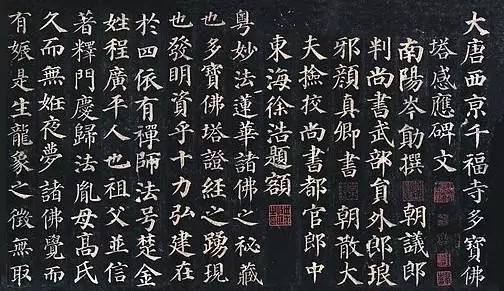 大唐西京千福寺多寶佛
塔感應碑文
南陽岑勛撰 朝議郎
判尚書武部員外郎琅
邪顏真卿書 朝散大
夫撿挍尚書都官郎中
東海徐浩題額
粵妙法蓮華諸佛之秘藏
也多寶佛塔證經之踴現
也發明資乎十力弘建在
於四依有禪師法号楚金
姓程廣平人也祖父並信
著釋門慶歸法胤母高氏
久而無妊夜夢諸佛覺而
有娠是生龍象之徵無取